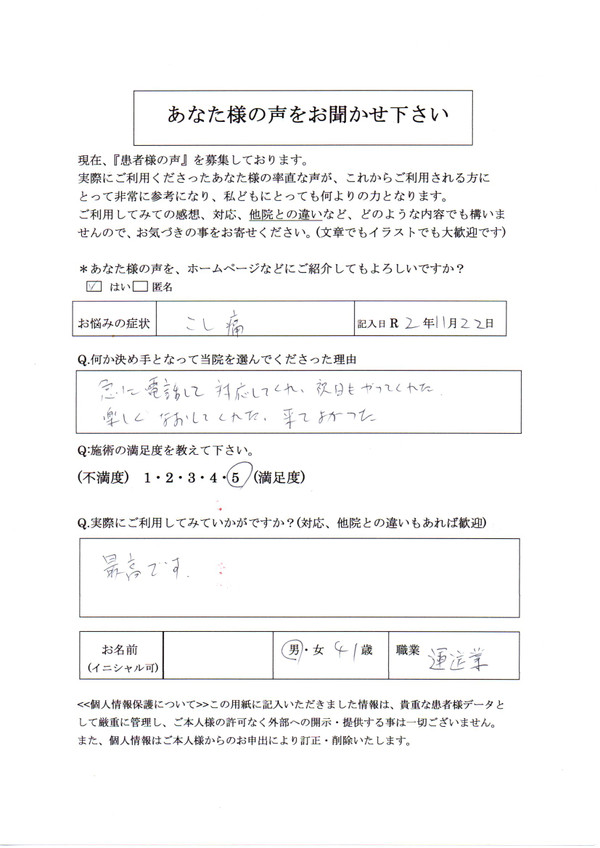 あなた様の声をお聞かせ下さい
現在、『患者様の声』を募集しております。
実際にご利用くださったあなた様の率直な声が、これからご利用される方に
とって非常に参考になり、私どもにとっても何よりの力となります。
ご利用してみての感想、対応、他院との違いなど、どのような内容でも構いま
せんので、お気づきの事をお寄せください。(文章でもイラストでも大歓迎です)
＊あなた様の声を、ホームページなどにご紹介してもよろしいですか？
☑ はい □ 匿名
お悩みの症状 こし痛 記入日 R 2 年 11 月 22 日
Q.何か決め手となって当院を選んでくださった理由
急に電話して対応してくれ、祝日もやってくれた
楽しくなおしてくれた、来てよかった
Q:施術の満足度を教えて下さい。
(不満度) 1・2・3・4・5 (満足度)
Q.実際にご利用してみていかがですか？(対応、他院との違いもあれば歓迎)
最高です。
お名前 男・女 41 歳 職業 運送業
(イニシャル可)
<<個人情報保護について>>この用紙に記入いただきました情報は、貴重な患者様データと
して厳重に管理し、ご本人様の許可なく外部への開示・提供する事は一切ございません。
また、個人情報はご本人様からのお申出により訂正・削除いたします。